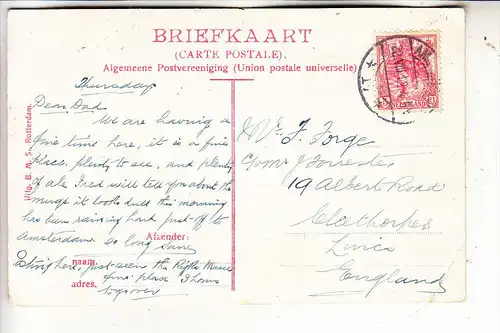 BRIEFKAART
(CARTE POSTALE).
Algemeene Postvereeniging (Union postale universelle)
Thursday
Dear Dad
We are having a
fine time here, it is a fine
place. plenty to see, and plenty
of ale Fred will tell you about the
mugs. it looks dull this morning
has been raining hard. just off to
Amsterdam. so long
here, just seen the Rijks Musee
fine place 3 hours
to go over
Afzender:
naam.
adres.
Uitg. B. M. S., Rotterdam.
Mr F. Forge
J Forrester
19 Albert Road
Cleethorpes
Lincs
England
NEDERLAND